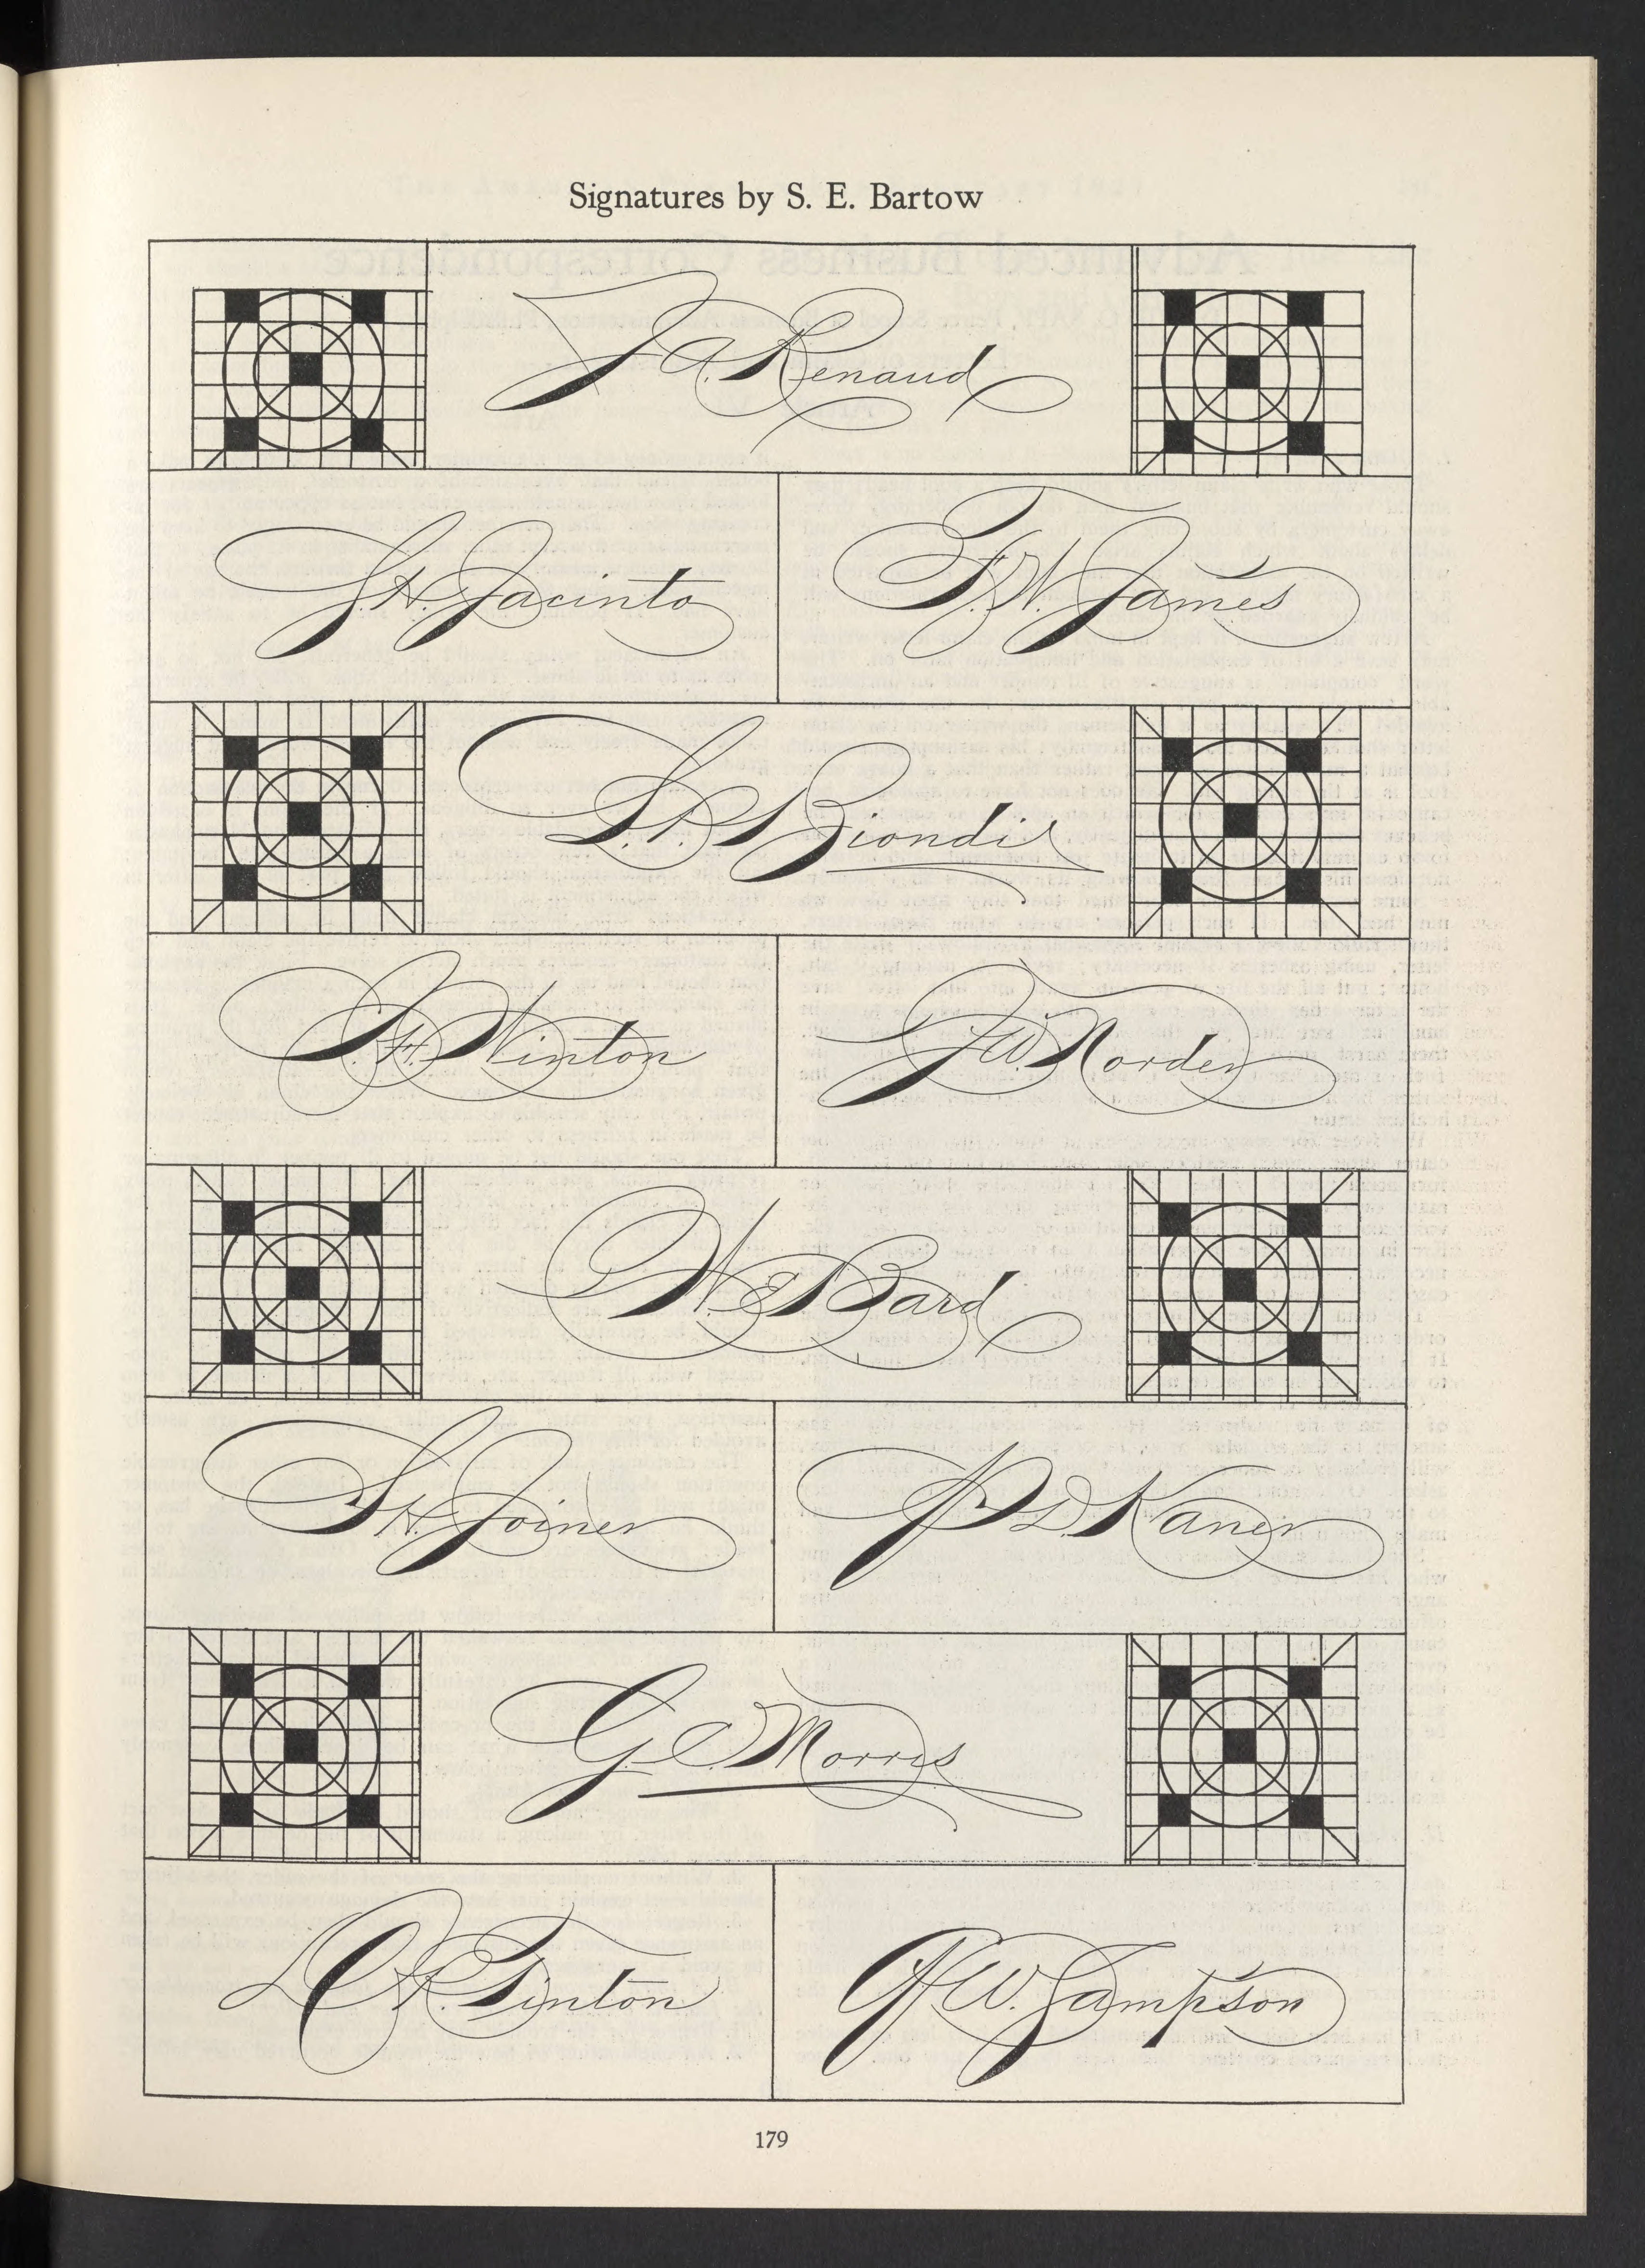 Signatures by S. E. Bartow
J. A. Renaud
S. H. Jacinto
F. W. James
S. P. Biondi
S. H. Winton
J. W. Norden
W. E. Bard
S. H. Joiner
P. D. Kaner
G. C. Morris
Sinton
W. Sampson
179